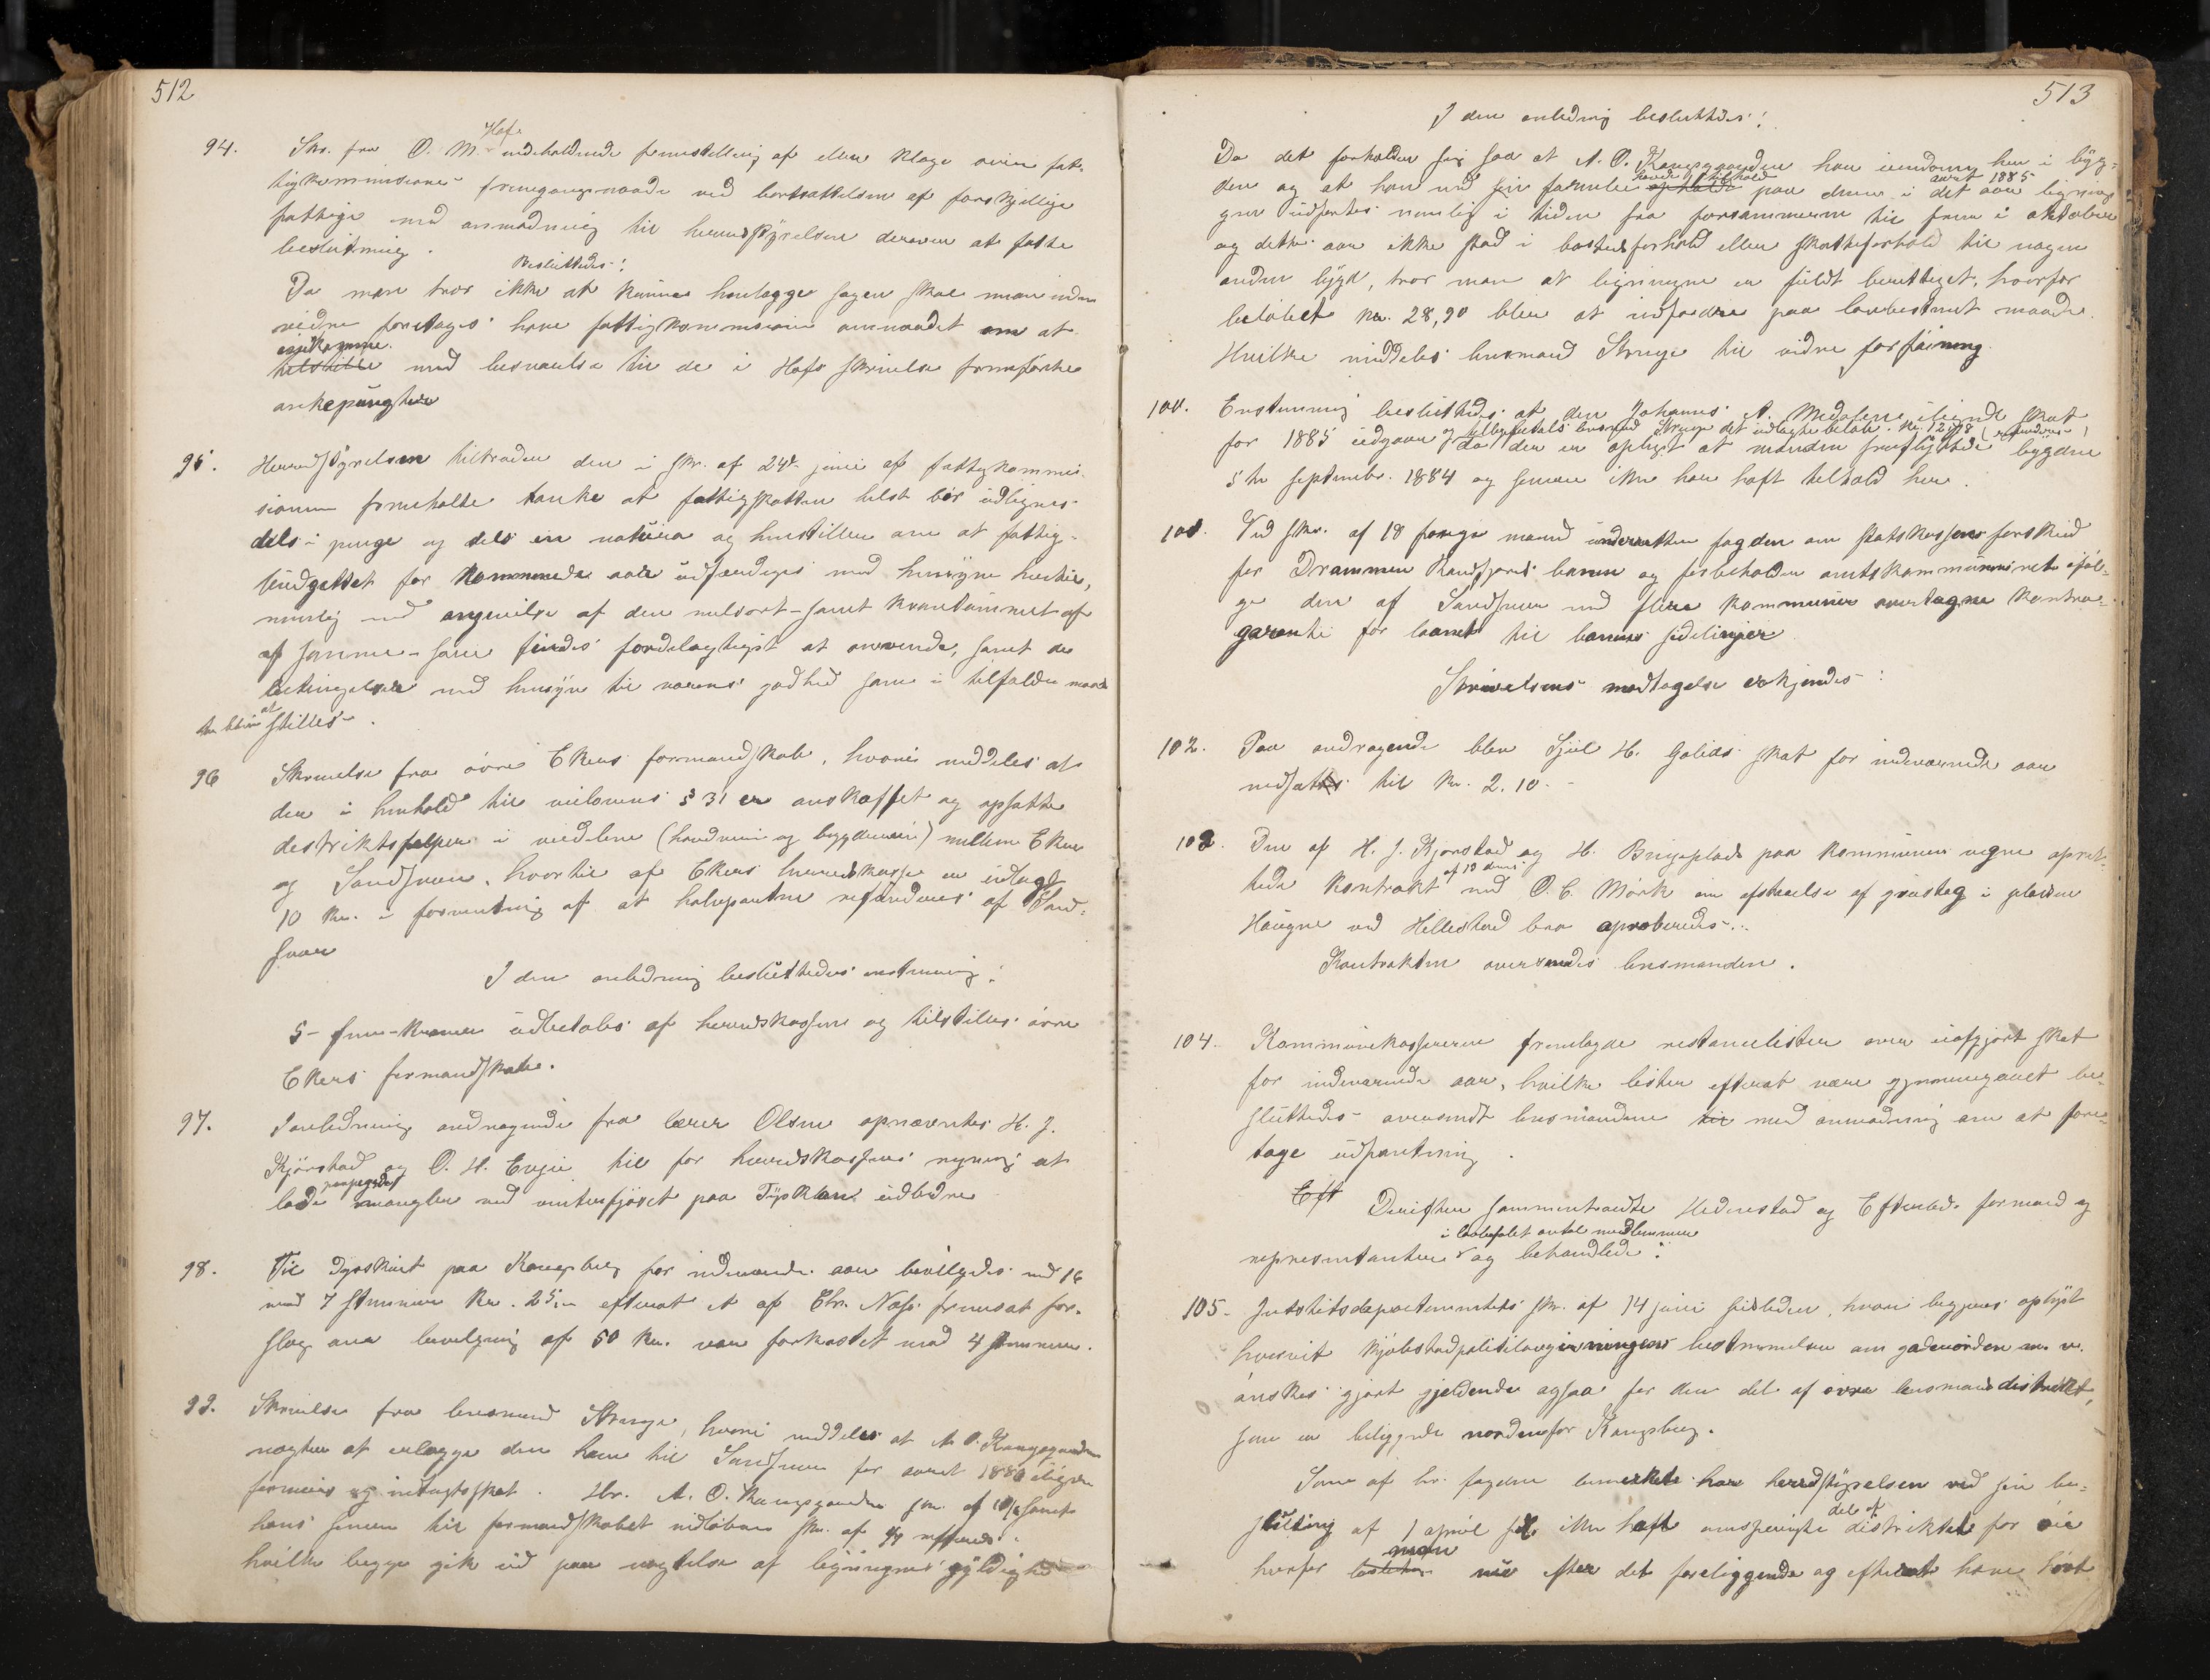 512
94. Skr. fra O. M. Hofs indeholdende fremstilling af eller klage over fat-
tigkommisionens fremgangsmaade ved bortsættelsen af forskjellige
fattige med anmodning til herredstyrelsen derover at fatte
beslutning.
Besluttedes:
Da man tror ikke at kunne henlægge sagen skal man inden
videre foretages have fattigkommisionen anmodet om at
fremkomme
tilstille med besvarelse til de i Hofs skrivelse fremførte
ankepungter
95. Herredstyrelsen tiltræder den i skr. af 24de juni af fattigkommis-
sionen fremholdte tanke at fattigskatten helst bør udlignes
dels i penge og dels in natura og henstiller om at fattig-
budgettet for kommende aar udfærdiges med hensyn hertil,
nemlig med angivelse af den melsort - samt kvantummet af
af samme - som findes fordelagtigst at anvende, samt de
betingelser med hensyn til varens godhed som i tilfælde maatte
at
stilles.
96 Skrivelse fra øvre Ekers formandskab, hvori meddeles at
der i henhold til veilovens § 31 er anskaffet og opsatte
destriktspæler i veidelene (hovedvei og bygdevei) mellem Eker
og Sandsvær, hvortil af Ekers herredskasse er udlagt
10 kr. i forventning af at halvparten refunderes af Sand-
svær
I den anledning besluttedes enstemmig:
5 - fem - kroner udbetales af herredskassen og tilstilles øvre
Ekers formandskab.
97. I anledning andragende fra lærer Olsen opnævntes H. J.
Kjørstad og O. H. Evju til for herredskassens regning at
paapegede
lade mangler ved vinterfjøset paa Tyskland udbedre
98. Til dyrskuet paa Kongsberg for indeværende aar bevilgedes med 16
mod 7 stemmer kr. 25,- efterat et af Chr. Næss fremsat for-
slag om bevilgning af 50 kr. var forkastet med 4 stemmer.
99. Skrivelse fra lensmand Strange, hvori meddeles at A. O. Kongsgaarden
nægter at erlægge den ham til Sandsvær for aaret 1886 ilignede
formues og indtægtsskat. Hr. A. O. Kongsgaarden skr. af samt
hans senere til formandskabet indløbne skr. af
hvilke begge gik ud paa nægtelse af ligningens gyldighed
513
I den anledning besluttedes:
Da det forholder sig saa at A. O. Kongsgaarden har eiendom her i byg-
havde tilhold aaret 1885
den og at han med sin familie opholdt paa denne i det aar lignin
gen udførtes nemlig i tiden fra forsommeren til frem i oktober
og dette aar ikke stod i bostedsforhold eller skatteforhold til nogen
anden bygd, tror man at ligningen er fuldt berettiget, hvorfor
beløbet kr. 28,90 blir at indfordre paa lovbestemt maade.
Hvilke meddeles lensmand Strange til videre forføining.
100. Enstemmig besluttedes at den Johannes A. Medalen ilignede skat
og tilbagebetales lensmand Strange det udlagte beløb kr. 12,78 (refunderes)
for 1885 udgaar da der er oplyst at manden fraflyttede bygden
5te septembr. 1884 og senere ikke har haft tilhold her.
101. Ved skr. af 18 forrige maaned underretter fogden om statskassens forskud
for Drammen Randsfjords banen og forbeholder amtskommunernes iføl-
ge den af Sandsvær med flere kommuner overtagne kontra-
garanti for laanet til banens sidelinjer
Skrivelsens modtagelse erkjendes:
102. Paa andragende blev Kjel H. Golids skat for indeværende aar
nedsattes til kr. 2.10.-
103. Den af H. J. Kjørstad og H. Bingeplads paa kommunens vegne opret-
af 13 dennes
tede kontrakt med O. C. Mørk om afstaaelse af grustag i pladsen
Haugen ved Hillestad bro aproberedes.
Kontrakten oversendes lensmanden.
104. Kommunekassereren fremlagde restancelister over uafgjort skat
for indeværende aar, hvilke lister efterat være gjennemgaaet be-
sluttedes oversendt lensmanden til med anmodning om at fore-
tage udpantning.
Eft Derefter sammentraadte Hedenstad og Efteløds formænd og
i lovbefalet antal medlemmer
representanter og behandlede:
105. Justitsdepartementets skr. af 14 juni sidstleden, hvori begjæres oplyst
hvorvidt kjøbstadpolitilovgivningens bestemmelser om gadeorden m. v.
ønskes gjort gjældende ogsaa for den del af øvre lensmandsdistrikt,
som er beliggende nordenfor Kongsberg.
Som af hr. fogden bemerket har herredstyrelsen ved sin be-
del af
slutning af 1 april ikke haft omspurgte distriktet for øie
man
hvorfor beslutter nu efter det foreliggende og efterat have hørt